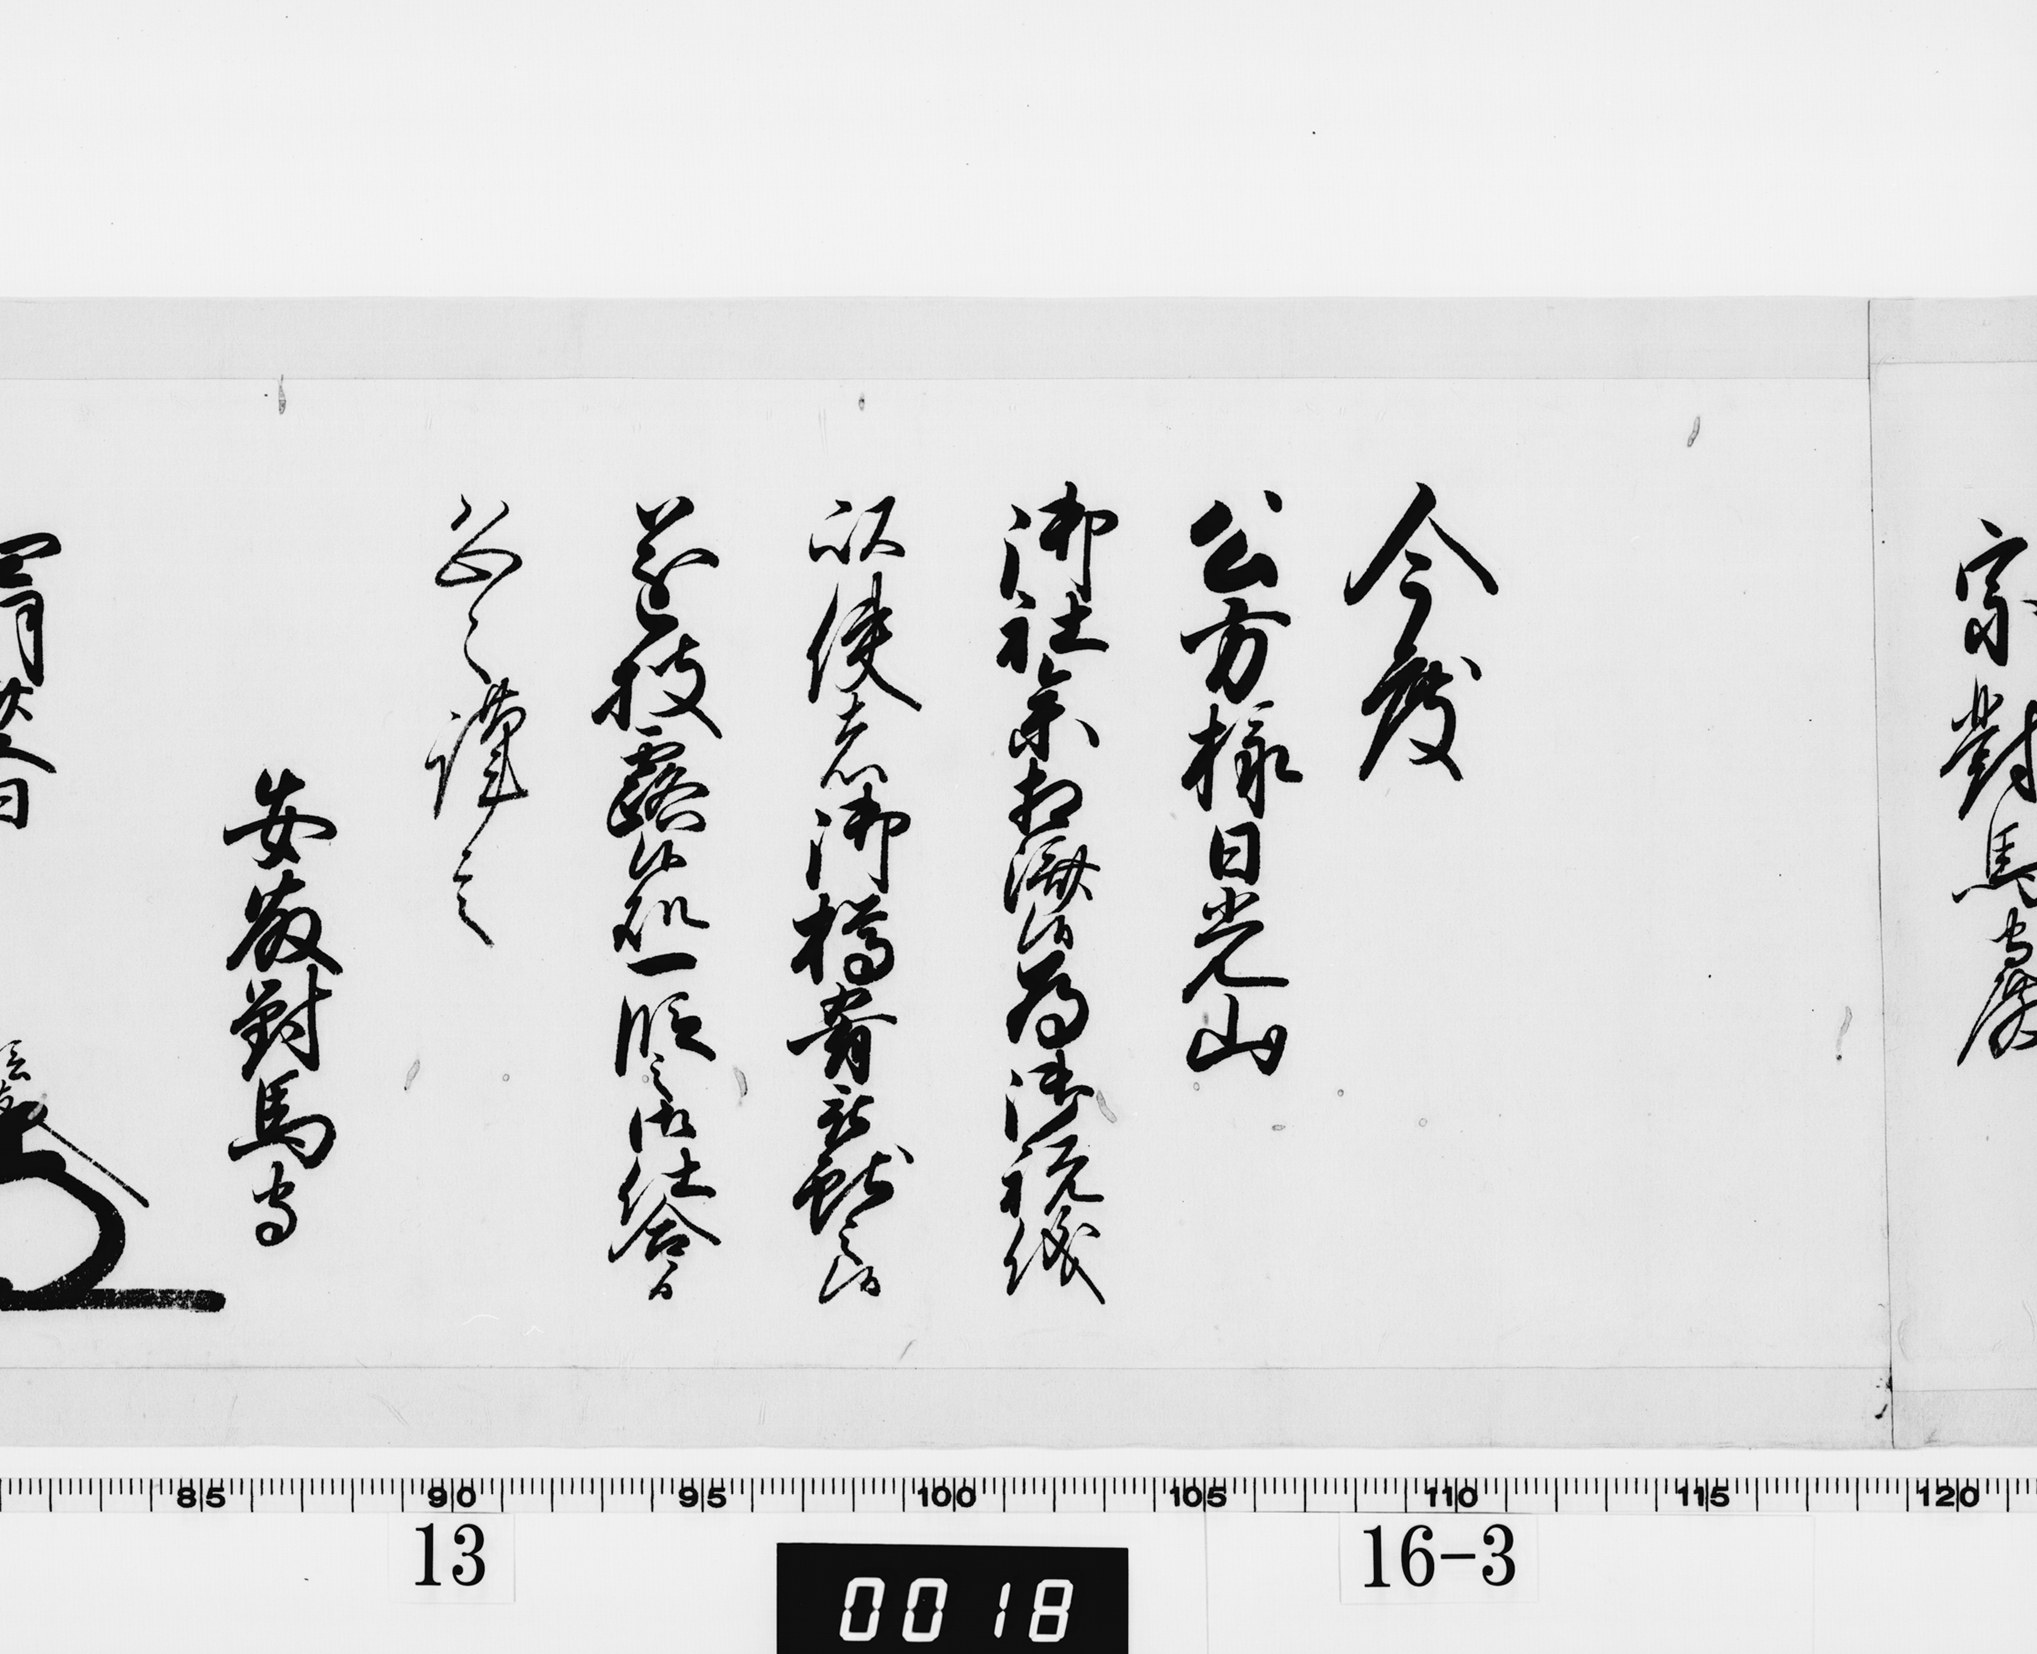 宗對馬守殿
今度
公方様日光山
御社参相済付為御祝儀
以使者御樽肴被献之付
遂披露候処一段之御仕合
恐々謹言
安藤對馬守
四月廿八日
85 90 95 100 105 110 115 120
13
16-3
0018